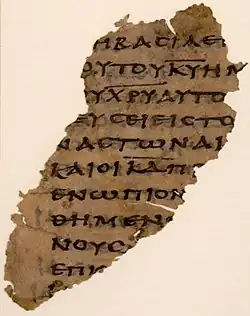 ΗΒΑϹΙΛΕΙ
ΟΥΤΟΥΚ̅Υ̅Η
ΟΥΧ̅Ρ̅Υ̅ΑΥΤΟ
ΕΥϹΕΙΕΙϹΤΟ
ΝΑϹΤΩΝΑΙ
ΚΑΙΟΙΚ̅Δ̅Π
ΕΝΩΠΙΟΝ
ΘΗΜΕΝ
ΝΟΥϹ
ΕΠΙ